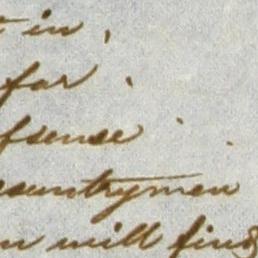 in,
far
sense
countrymen
will find